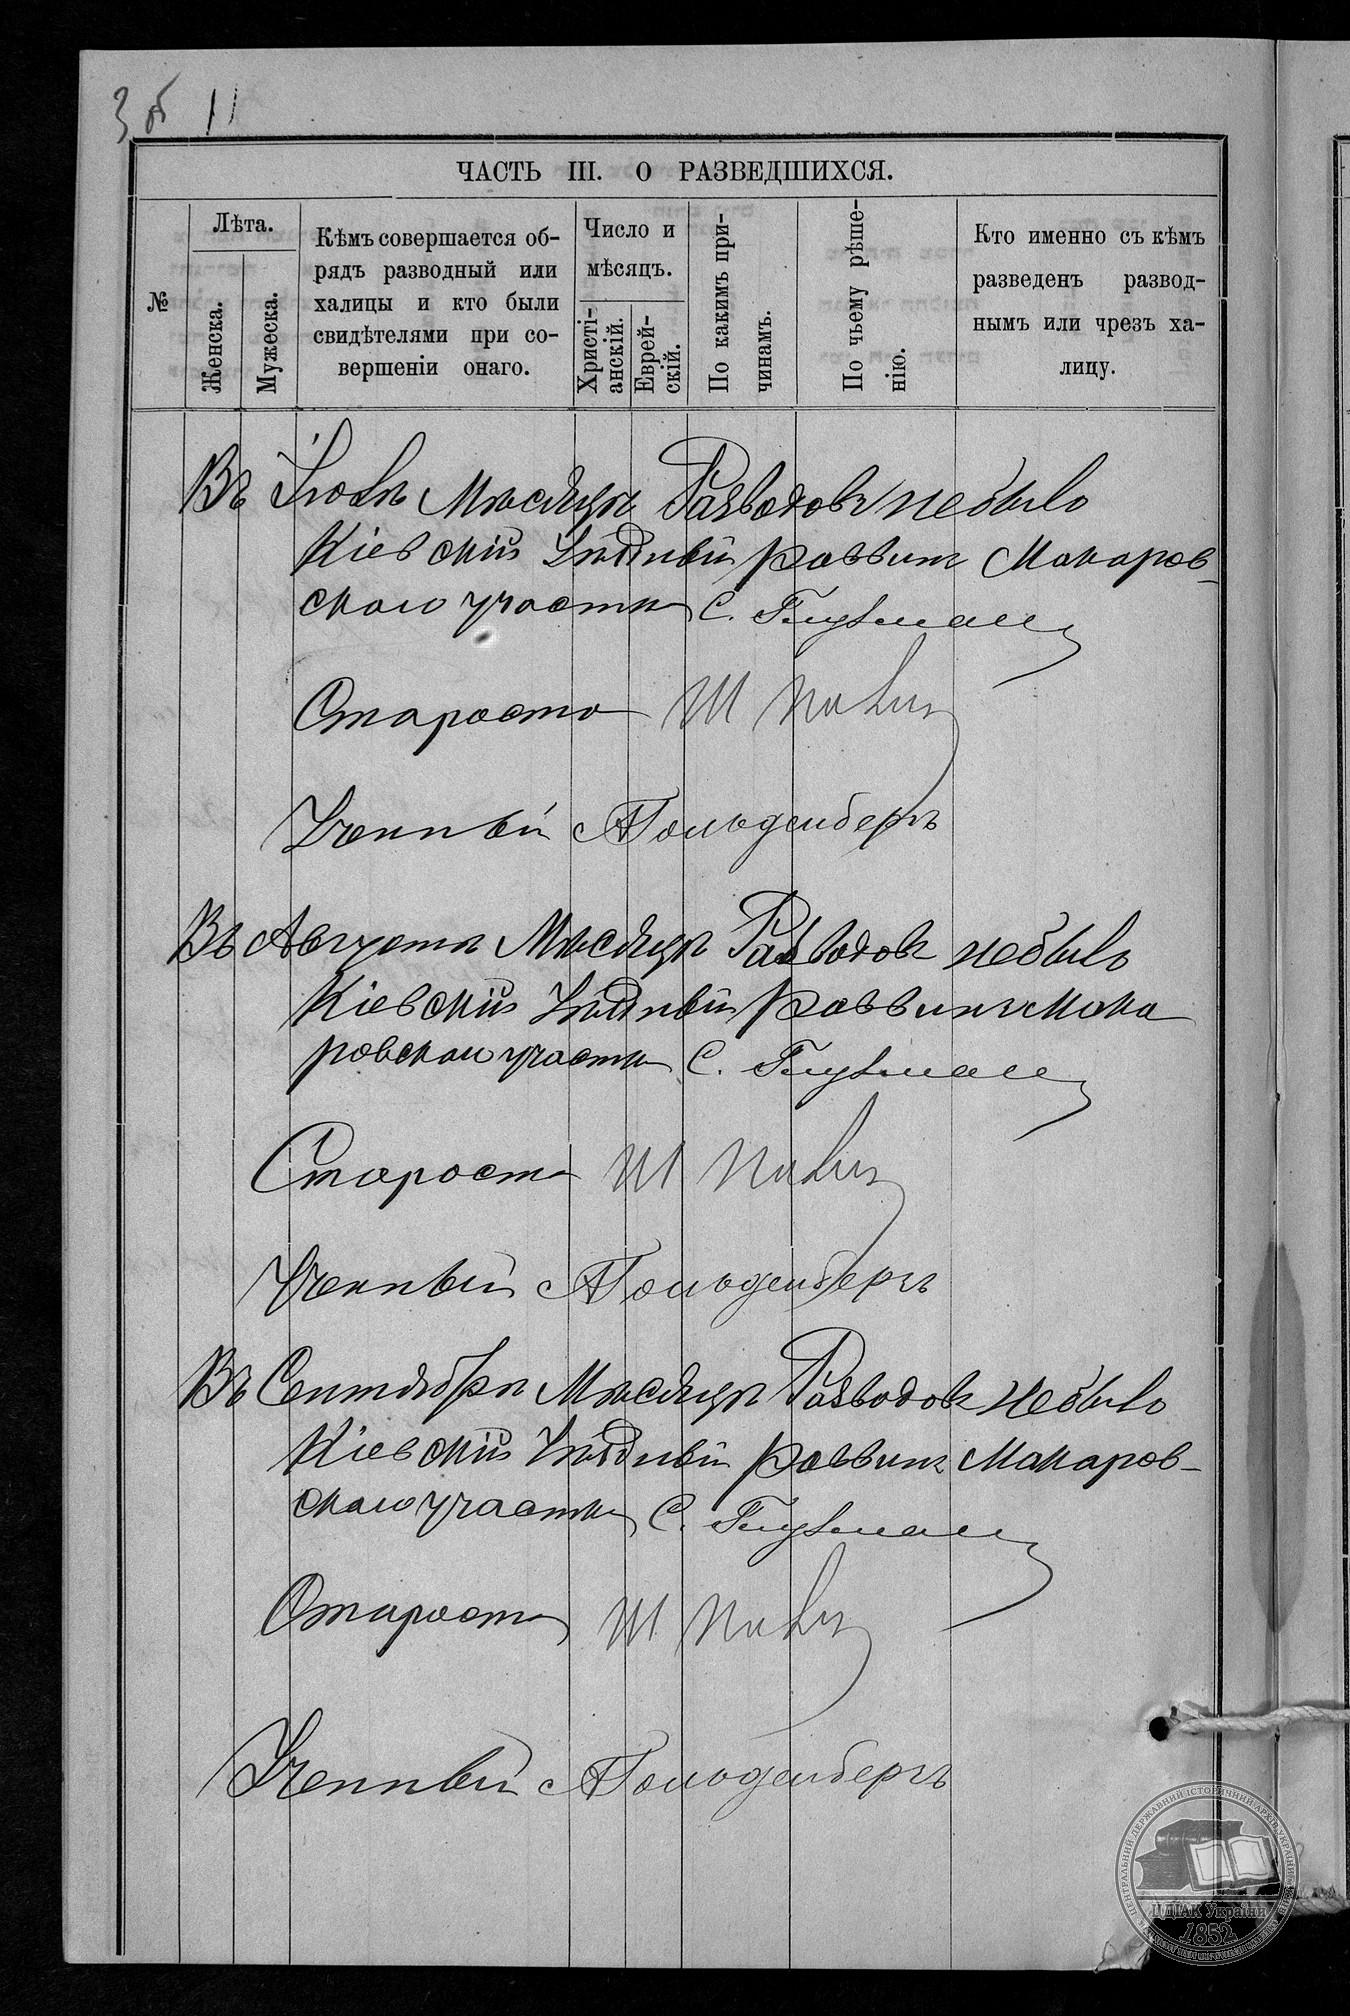 3 об 11
ЧАСТЬ III. О РАЗВЕДШИХСЯ.
№
Лѣта.
Женска.
Мужеска.
Кѣмъ совершается об-
рядъ разводный или
халицы и кто были
свидѣтелями при со-
вершеніи онаго.
Число и
мѣсяцъ.
Христі-
анскій.
Еврей-
скій.
По какимъ при-
чинамъ.
По чьему рѣше-
нію.
Кто именно съ кѣмъ
разведенъ развод-
нымъ или чрезъ ха-
лицу.
Въ Іюлѣ Мѣсяцѣ Разводовъ небыло
Кіевскій Уѣздный раввинъ Макаров-
скаго участка С. Глузман
Староста Ш
Ученный А Гольденбергъ
Въ Августѣ Мѣсяцѣ Разводовъ небыло
Кіевскій Уѣздный раввинъ Мака
ровскаго участка С. Глузман
Староста Ш
Ученный А Гольденбергъ
Въ Сентябрѣ Мѣсяцѣ Разводовъ небыло
Кіевскій Уѣздный раввинъ Макаров-
скаго участка С. Глузман
Староста Ш
Ученный А Гольденбергъ
ЦЕНТРАЛЬНИЙ ДЕРЖАВНИЙ ІСТОРИЧНИЙ АРХІВ УКРАЇНИ
ЦДІАК України
1852